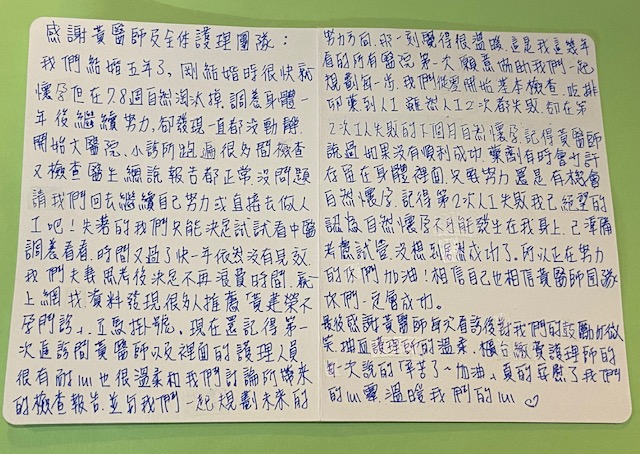 感謝黃醫師及全体護理團隊：
我們結婚五年了，剛結婚時很快就
懷孕但在7.8週自然淘汰掉，調養身體一
年後繼續努力，卻發現一直都沒動靜
開始大醫院、小診所跑遍很多間檢查
又檢查醫生總說報告都正常沒問題
請我們回去繼續自己努力或直接去做人
工吧！失落的我們只能決定試試看中醫
調養看看，時間又過了快一年依然沒有見效
我們夫妻思考後決定不再浪費時間，就
上網找資料發現很多人推薦「黃建榮不
孕門診」，立馬掛號。現在還記得第一
次進診間黃醫師以及裡面的護理人員
很有耐心也很溫柔和我們討論所帶來
的檢查報告，並和我們一起規劃未來的
努力方向，那一刻覺得很溫暖，這是我這幾年
看的所有醫院第一次願意協助我們一起
規劃每一步，我們從零開始基本檢查、吃排
卵藥到人工雖然人工2次都失敗，卻在第
2次人工失敗的下個月自然懷孕，記得黃醫師
說過如果沒有順利成功，藥劑有時會也許
存留在身體裡面，只要努力還是有機會
自然懷孕，記得第2次人工失敗我已經絕望的
認為自然懷孕不可能發生在我身上，已準備
考慮試管，沒想到居然成功了。所以正在努力
的你們加油！相信自己也相信黃醫師團隊
你們一定會成功。
最後感謝黃醫師每次看診後對我們的鼓勵和微
笑，抽血護理師的溫柔，櫃台繳費護理師的
每一次說的「辛苦了~加油」，真的安慰了我們
的心靈，溫暖我們的心 ♡